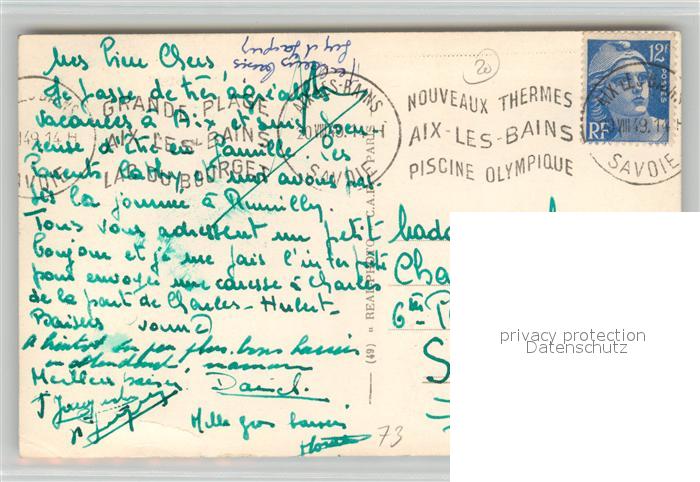 Mes bien Chers,
Je passe de très agréables
vacances à Aix et suis heu-
reuse d'être en famille. les
Parents et moi avons pas-
sé la journée à Rumilly.
Tous vous adressent un petit
bonjour et je me fais l'interprète
pour envoyer une caresse à Charles
de la part de Charles-Hubert.
Baisers
A bientôt un peu plus. bons baisers
en attendant, maman
Meilleurs baisers
Daniel.
Mille gros baisers
GRANDE PLAGE
AIX-LES-BAINS
LAC DU BOURGET
AIX-LES-BAINS
20 VIII 49. 14 H
SAVOIE
NOUVEAUX THERMES
AIX-LES-BAINS
PISCINE OLYMPIQUE
AIX-LES-BAINS
20 VIII 49. 14 H
SAVOIE
12F
POSTES
RF
20
(49) « REAL PHOTO » C.A.P. PARIS
Mada
Cha
6 m
S
73
privacy protection
Datenschutz